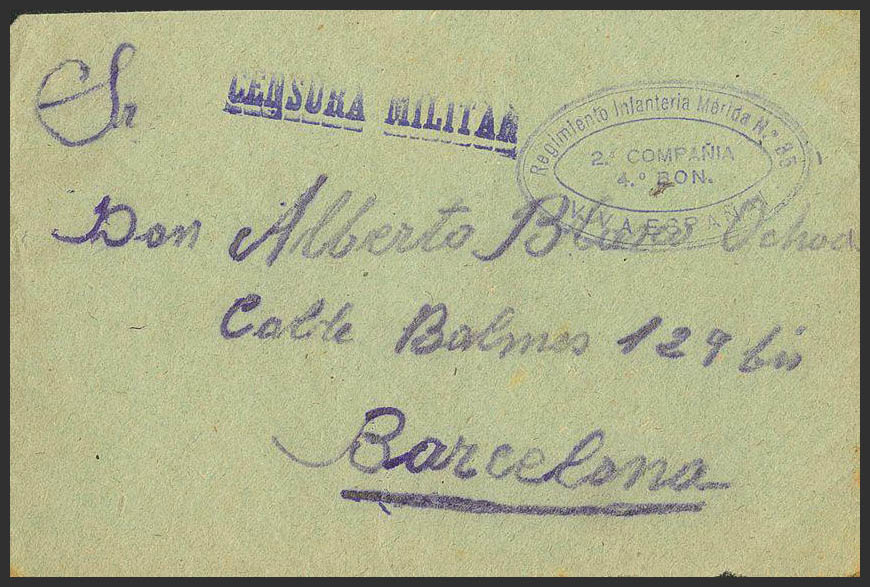 Sr
CENSURA MILITAR
Regimiento Infanteria Mérida N.º 35
2.ª COMPAÑIA
4.º BON.
VIVA ESPAÑA!
Don Alberto Blano Ochoa
Calle Balmes 129 bis
Barcelona